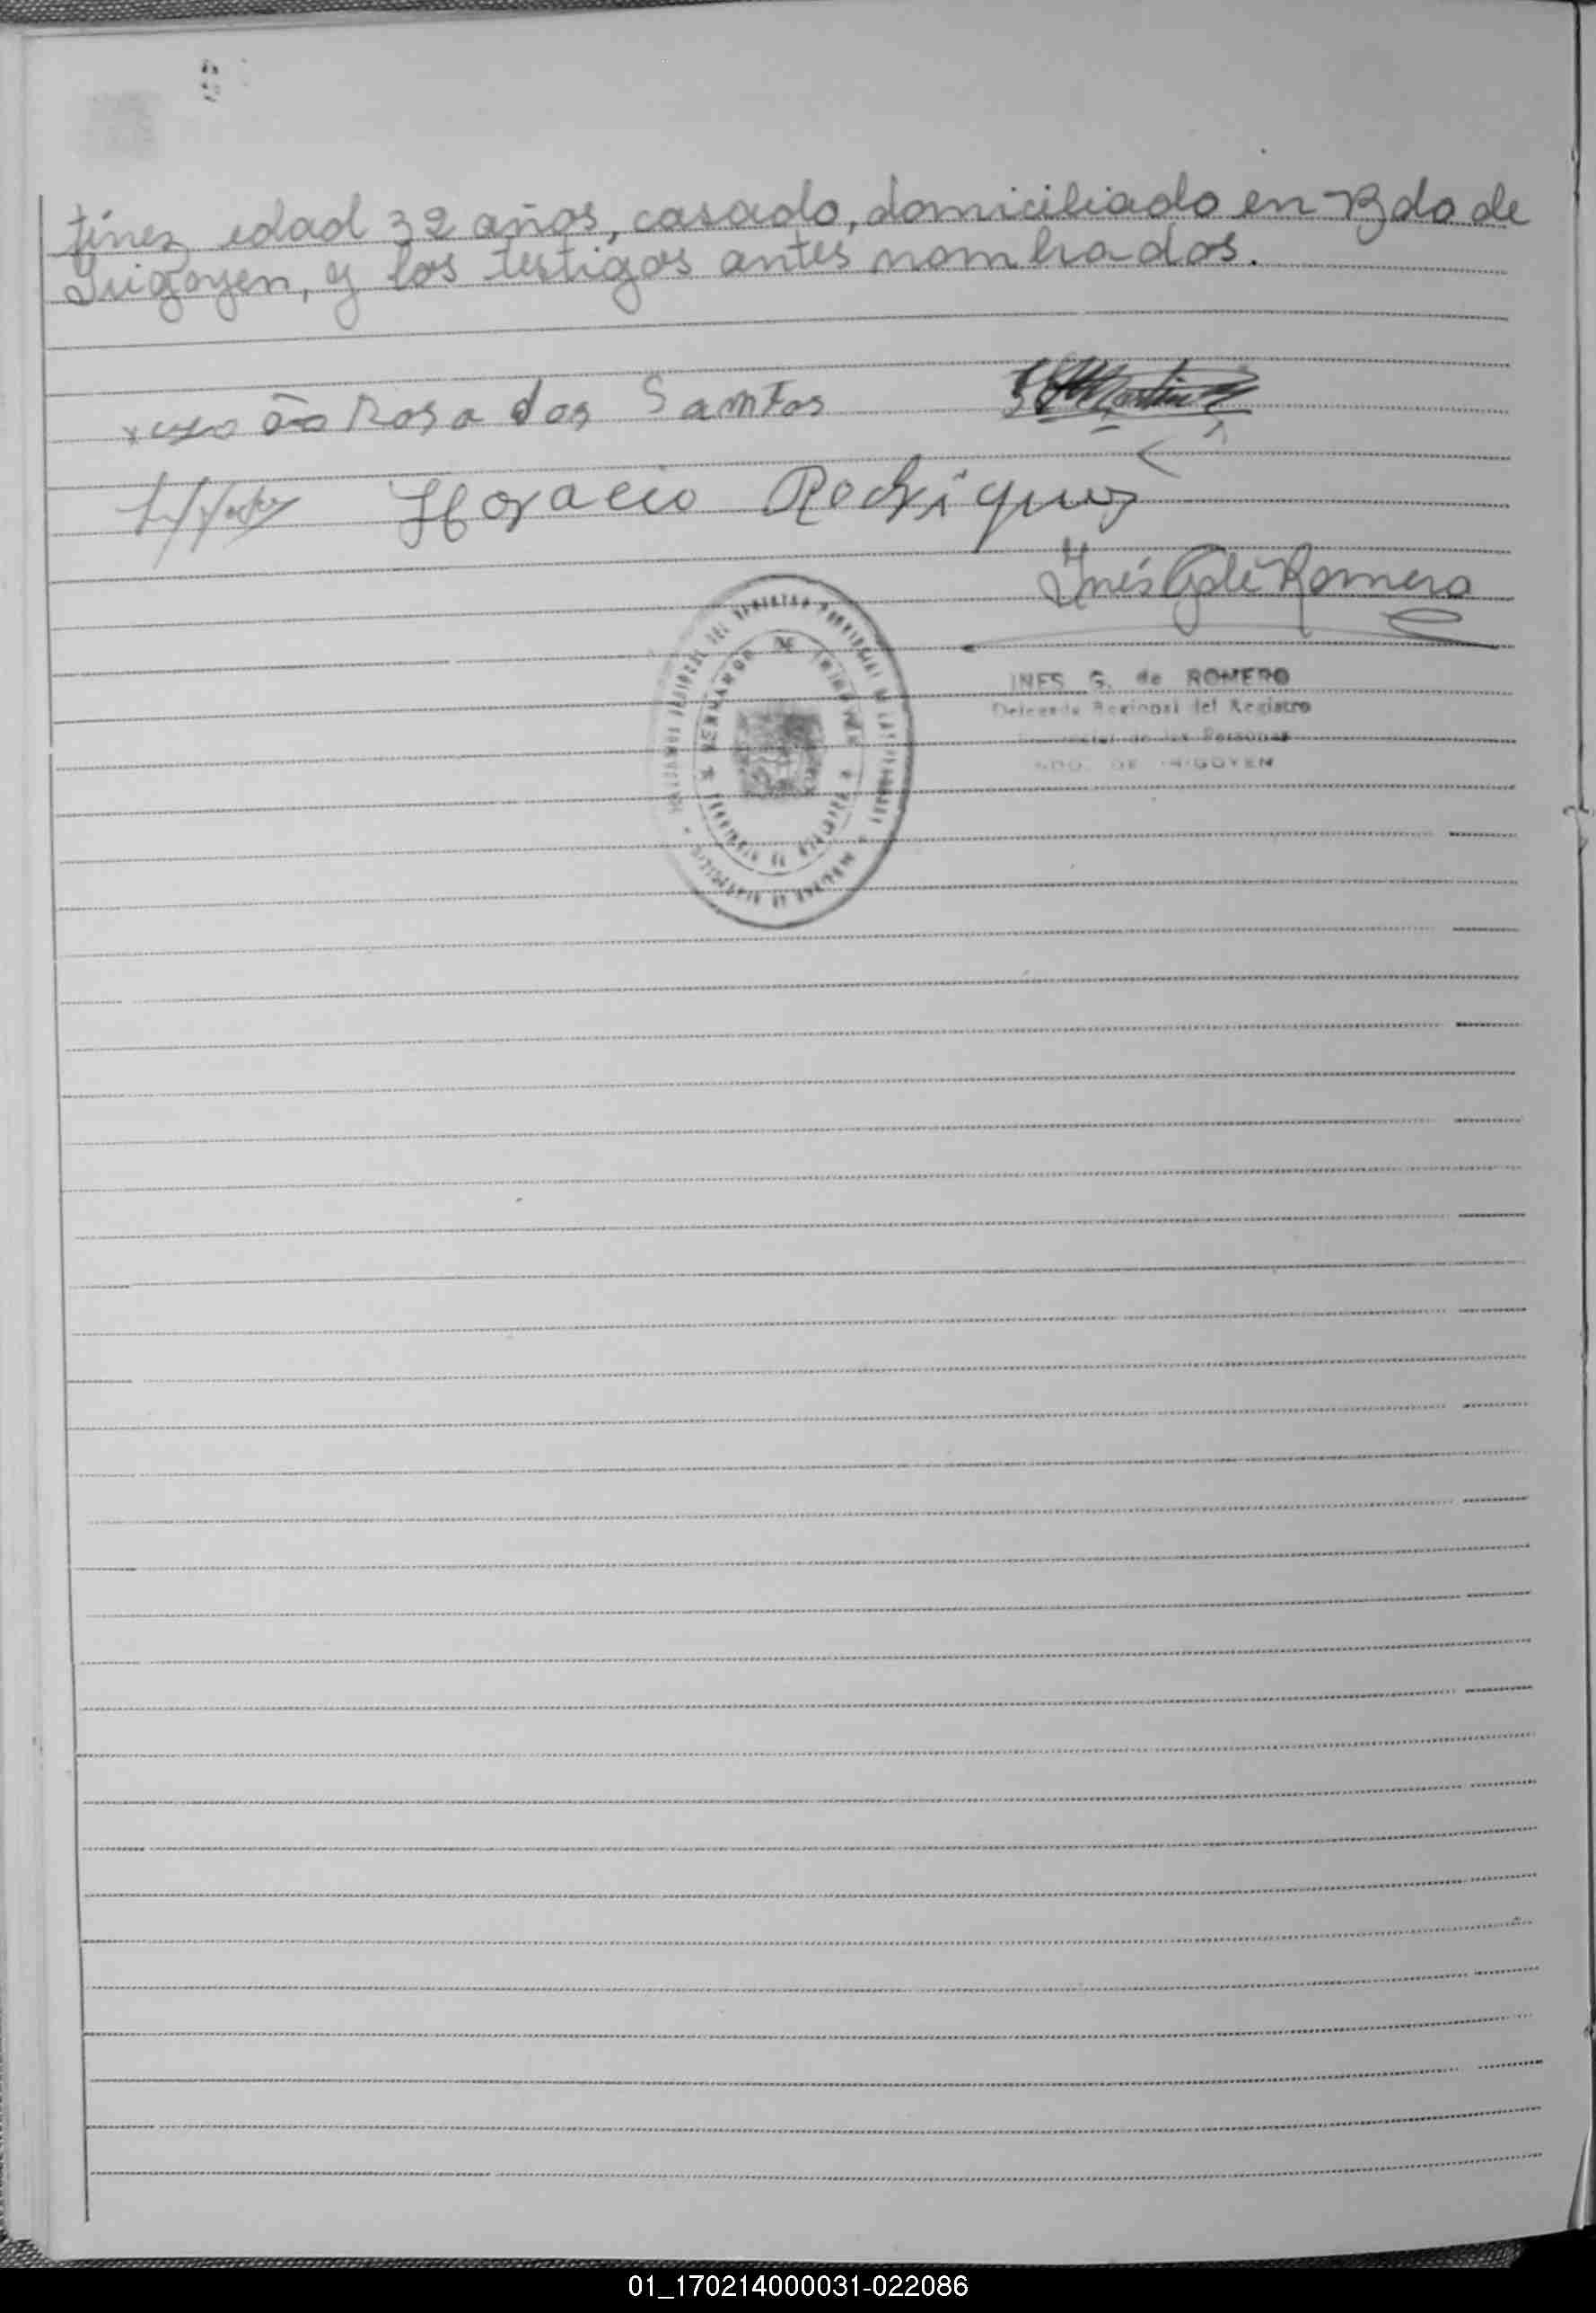 tínez edad 32 años, casado, domiciliado en Bdo de
Irigoyen, y los testigos antes nombrados.
Rosa dos Santos
Horacio Rodrigues
Inés G de Romero
INES G. de ROMERO
Delegada Regional del Registro
Provincial de las Personas
BDO. DE IRIGOYEN
01_170214000031-022086